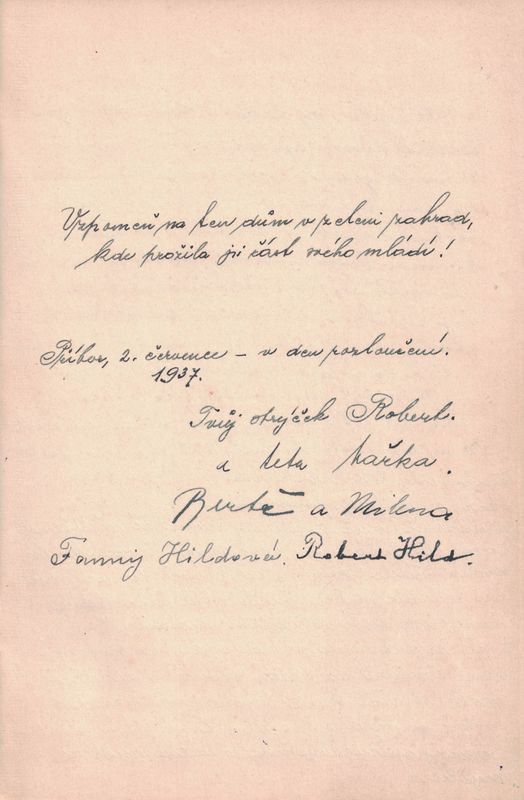 Vzpomeň na ten dům v zeleni zahrad,
kde prožila jsi část svého mládí!
Příbor, 2. července – v den rozloučení.
1937.
Tvůj strýček Robert.
a teta Mařka.
a Milena
Fanny Hildová. Robert Hild.